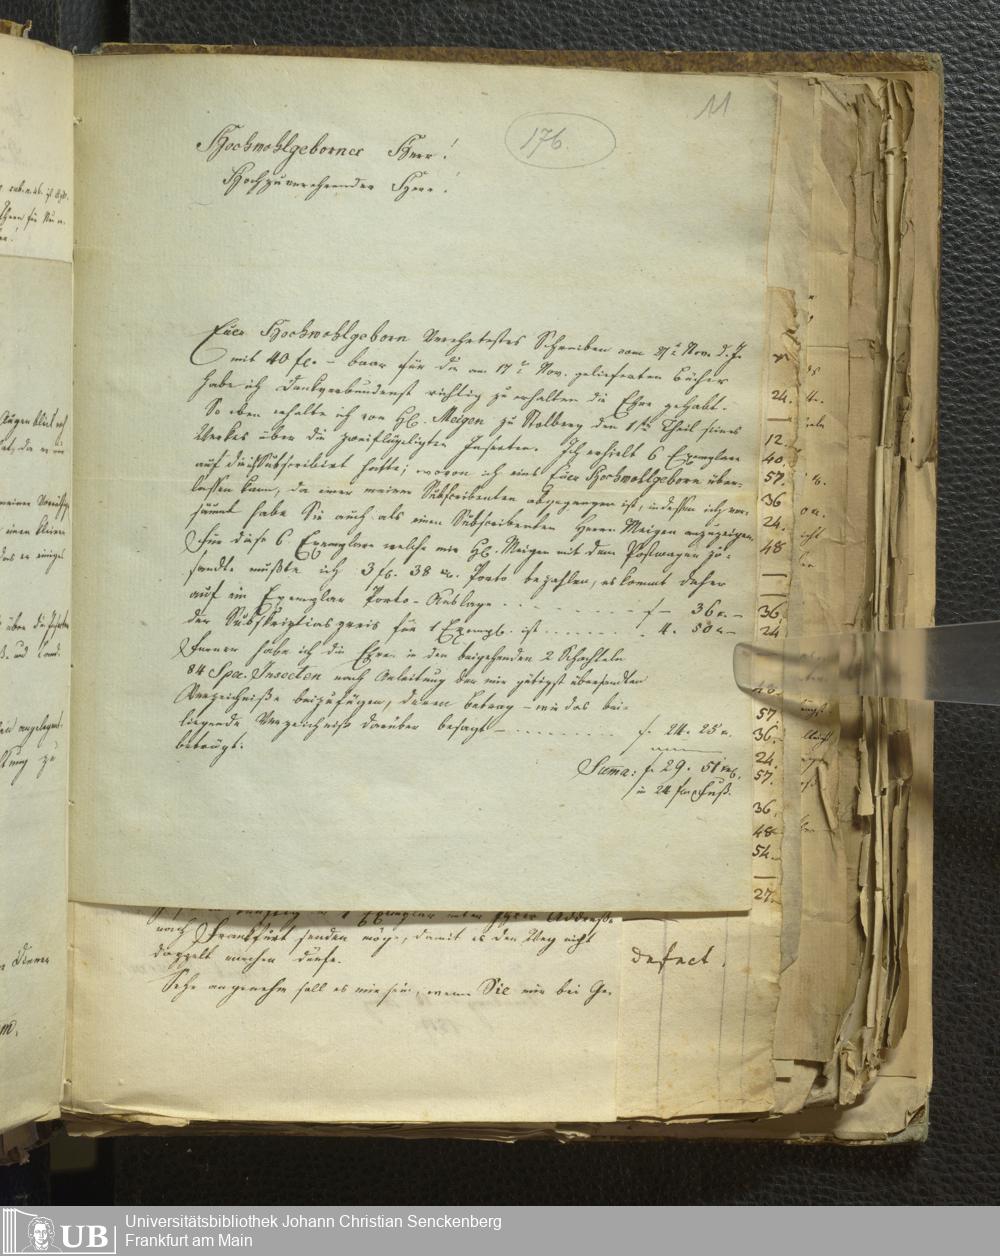 11
176.
Hochwohlgeborner Herr!
Hochzuverehrender Herr!
Euer Hochwohlgeborn Verehrtestes Schreiben vom 21t Nov. d. J.
mit 40 fl. – baar für die am 17t Nov. gelieferten Bücher
habe ich dankverbundenst richtig zu erhalten die Ehre gehabt.
So eben erhalte ich von H. Meigen zu Stolberg den 1ten Theil seines
Werkes über die zweiflügeligten Insecten. Ich erhielt 6 Exemplare
auf die ich Subscribirt hatte; wovon ich eins Euer Hochwohlgeborn über-
lassen kann, da einer meiner Subscribenten abgegangen ist, indessen ich ver-
säumt habe Sie auch als einen Subscribenten Herrn Meigen anzuzeigen.
Für diese 6 Exemplare welche mir H. Meigen mit dem Postwagen zu-
sandte mußte ich 3 fl. 38 xr. Porto bezahlen, es kommt daher
auf ein Exemplar Porto-Auslage . . . f – 36 x. –
der Subskriptionspreis für 1 Exempl. ist . . . 4. 50 x –
Ferner habe ich die Ehre in den beigehenden 2 Schachteln
84 Spec. Insecten nach Anleitung der mir gütigst übersandten
Verzeichniße beizufügen, deren betrag – wie das bei-
liegende Verzeichniß darüber besagt – . . . f. 24. 25 x.
beträgt.
Suma: f. 29. 51 xr.
in 24 f. Fuß.
1 Exemplar unter Ihrer Addresse
nach Frankfurt senden möge, damit es den Weg nicht
doppelt machen dürfe.
Sehr angenehm soll es mir sein, wenn Sie mir bei Ge-
defect.
24.
12.
40
57.
36
24.
48
36.
24
48
57
36.
24.
57.
36.
48
54
27.
UB
Universitätsbibliothek Johann Christian Senckenberg
Frankfurt am Main